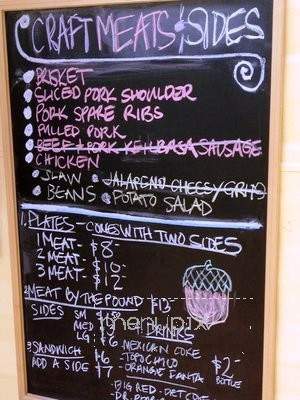 CRAFT MEATS & SIDES
BRISKET
SLICED PORK SHOULDER
PORK SPARE RIBS
PULLED PORK
BEEF + PORK KEILBASA SAUSAGE
CHICKEN
SLAW • JALAPENO CHEESY GRITS
BEANS • POTATO SALAD
1. PLATES - COMES WITH TWO SIDES
1 MEAT - $8
2 MEAT - $10
3 MEAT - $12
2. MEAT BY THE POUND $15
SIDES SM
MED
LG
DRINKS
MEXICAN COKE
- TOPO CHICO
- ORANGE FANTA
$2 BOTTLE
3. SANDWICH $6
ADD A SIDE $7
- BIG RED - DIET COKE
- DR. PEPPER
menupix